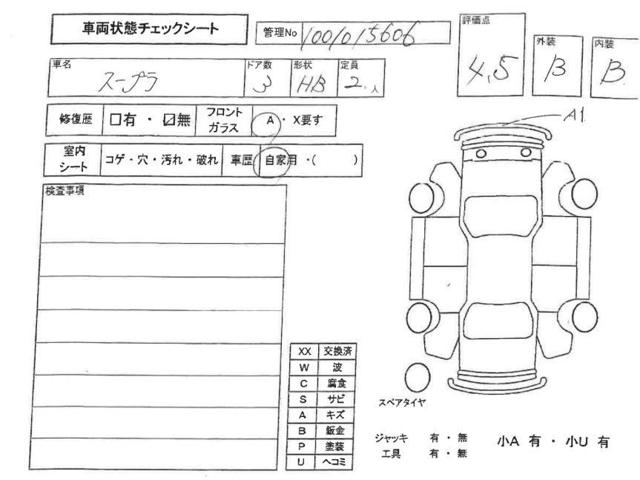 車両状態チェックシート
管理No 1001015606
評価点 4.5
外装 B
内装 B
車名 スープラ
ドア数 3
形状 HB
定員 2人
修復歴 □有・☑無
フロントガラス A・X要す
室内シート コゲ・穴・汚れ・破れ
車歴 自家用・( )
検査事項
A1
XX 交換済
W 波
C 腐食
S サビ
A キズ
B 鈑金
P 塗装
U ヘコミ
スペアタイヤ
ジャッキ 有・無
工具 有・無
小A 有・小U 有